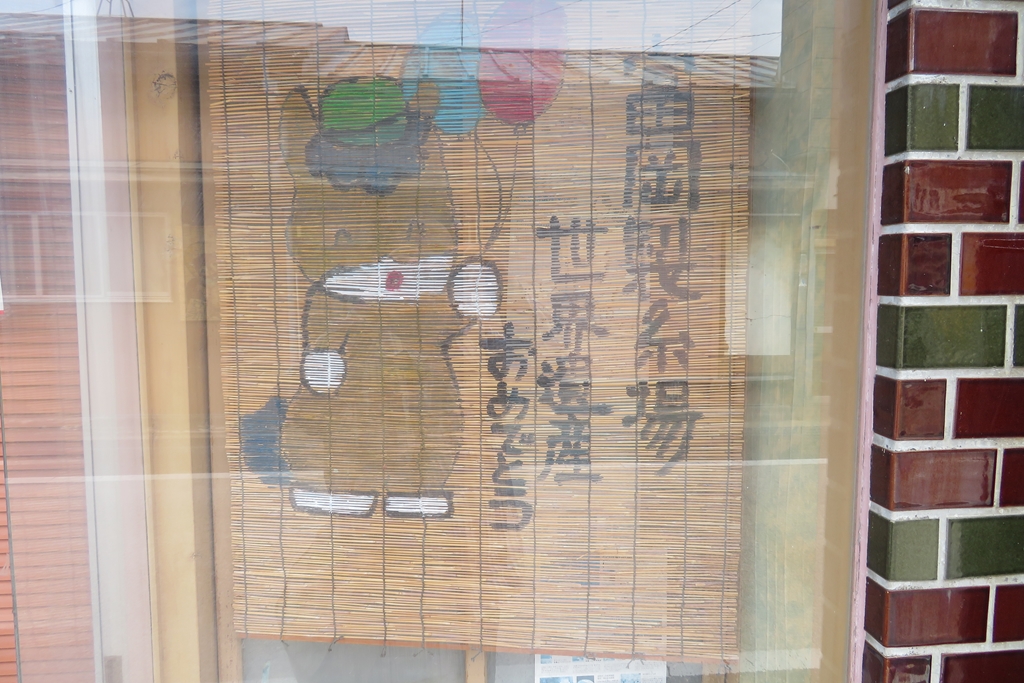 富岡製糸場
世界遺産
おめでとう